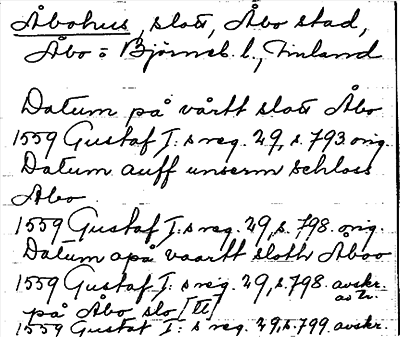 Åbohus, slott, Åbo stad,
Åbo o Björneb. l., Finland
Datum på vårtt slott Åbo
1559 Gustaf I:s reg. 29, s. 793. orig.
Datum auff unserm schloss
Åbo
1559 Gustaf I:s reg. 29, s. 798. orig.
Datum opå vaartt sloth Åboo
1559 Gustaf I:s reg. 29, s. 798. avskr.
på Åbo slo[tt]
1559 Gustaf I:s reg. 29, s. 799. avskr.